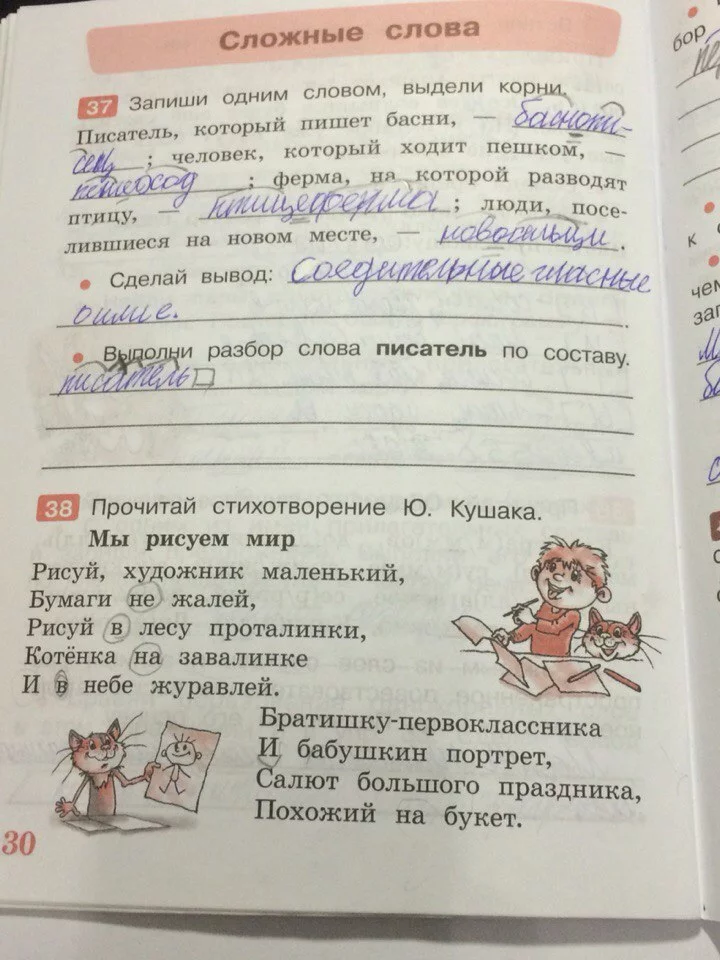 Сложные слова
37 Запиши одним словом, выдели корни.
Писатель, который пишет басни, — баснопи-
сец ; человек, который ходит пешком, —
пешеход ; ферма, на которой разводят
птицу, — птицеферма ; люди, посе-
лившиеся на новом месте, — новосёлы .
• Сделай вывод: Соедительные гласные
о или е.
• Выполни разбор слова писатель по составу.
писатель
38 Прочитай стихотворение Ю. Кушака.
Мы рисуем мир
Рисуй, художник маленький,
Бумаги не жалей,
Рисуй в лесу проталинки,
Котёнка на завалинке
И в небе журавлей.
Братишку-первоклассника
И бабушкин портрет,
Салют большого праздника,
Похожий на букет.
30
бор
к
чем
заг